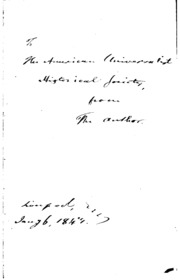 To
The American Universalist
Historical Society,
from
The Author.
Jany 6, 184